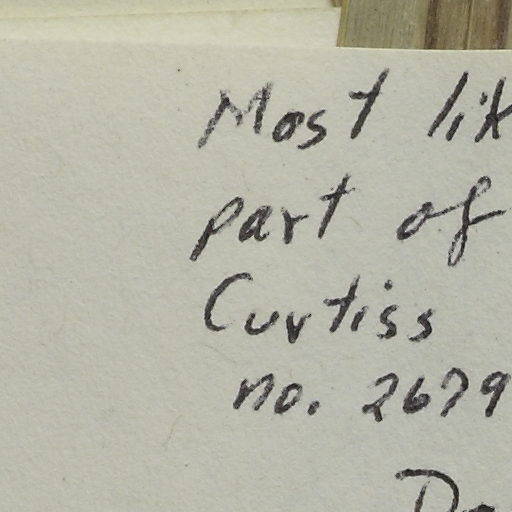 Most lik
part of
Curtiss
no. 2679